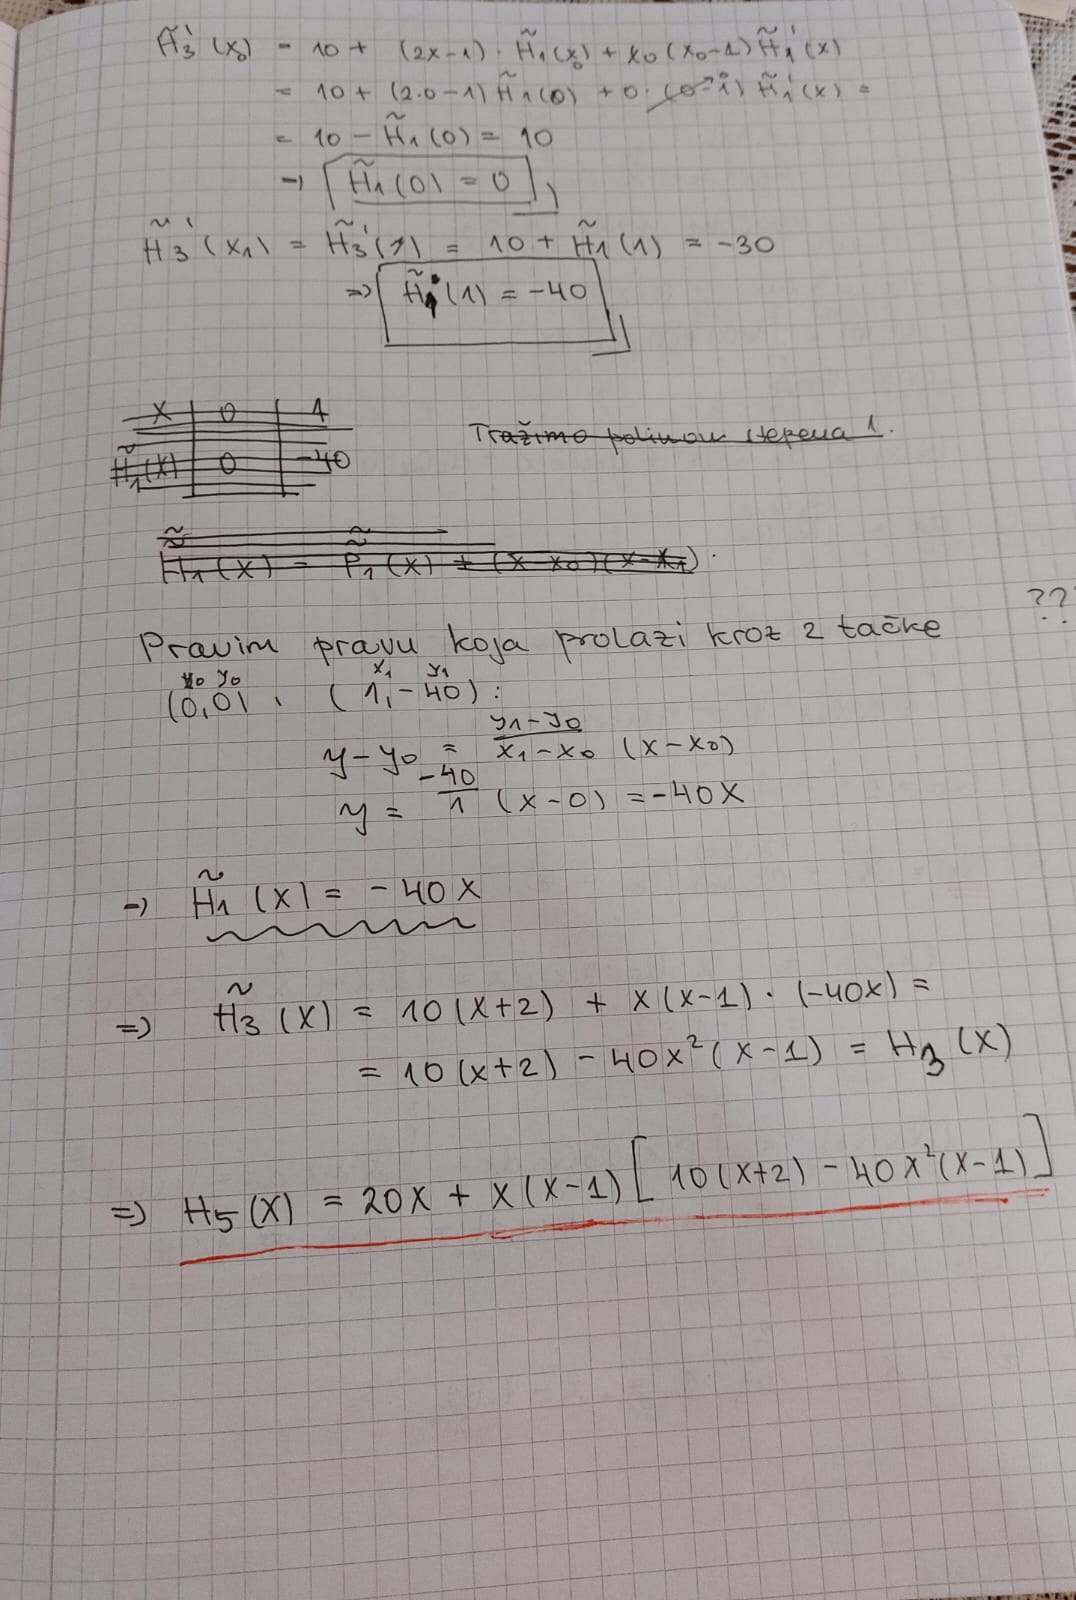 H̃₃'(x₀) = 10 + (2x-1) · H̃₁(x₀) + x₀(x₀-1) H̃₁'(x)
= 10 + (2·0-1) H̃₁(0) + 0·(0-1) H̃₁'(x) =
= 10 - H̃₁(0) = 10
→ H̃₁(0) = 0
H̃₃'(x₁) = H̃₃'(1) = 10 + H̃₁(1) = -30
⇒ H̃₁(1) = -40
x 0 1
Tražimo polinom stepena 1.
H̃₁(x) 0 -40
H̃₁(x) = P̃₁(x) + (x-x₀)(x-x₁).
??
Pravim pravu koja prolazi kroz 2 tačke
x₀ y₀ x₁ y₁
(0,0), (1,-40):
y-y₀ = \frac{y₁-y₀}{x₁-x₀} (x-x₀)
y = \frac{-40}{1} (x-0) = -40x
→ H̃₁(x) = -40x
⇒ H̃₃(x) = 10(x+2) + x(x-1)·(-40x) =
= 10(x+2) - 40x²(x-1) = H₃(x)
⇒ H₅(x) = 20x + x(x-1)[10(x+2) - 40x²(x-1)]